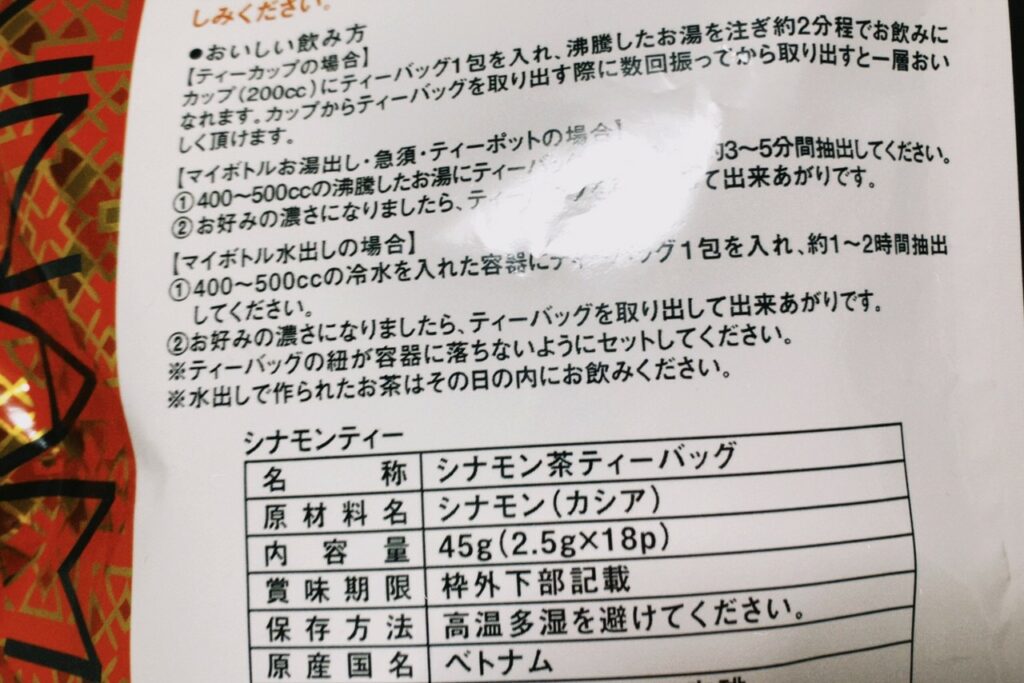 しみください。
●おいしい飲み方
【ティーカップの場合】
カップ(200cc)にティーバッグ1包を入れ、沸騰したお湯を注ぎ約2分程でお飲みに
なれます。カップからティーバッグを取り出す際に数回振ってから取り出すと一層おい
しく頂けます。
【マイボトルお湯出し・急須・ティーポットの場合】
①400〜500ccの沸騰したお湯にティー 約3〜5分間抽出してください。
②お好みの濃さになりましたら、テ て出来あがりです。
【マイボトル水出しの場合】
①400〜500ccの冷水を入れた容器にティーバッグ1包を入れ、約1〜2時間抽出
してください。
②お好みの濃さになりましたら、ティーバッグを取り出して出来あがりです。
※ティーバッグの紐が容器に落ちないようにセットしてください。
※水出しで作られたお茶はその日の内にお飲みください。
シナモンティー
名称 シナモン茶ティーバッグ
原材料名 シナモン(カシア)
内容量 45g(2.5g×18p)
賞味期限 枠外下部記載
保存方法 高温多湿を避けてください。
原産国名 ベトナム